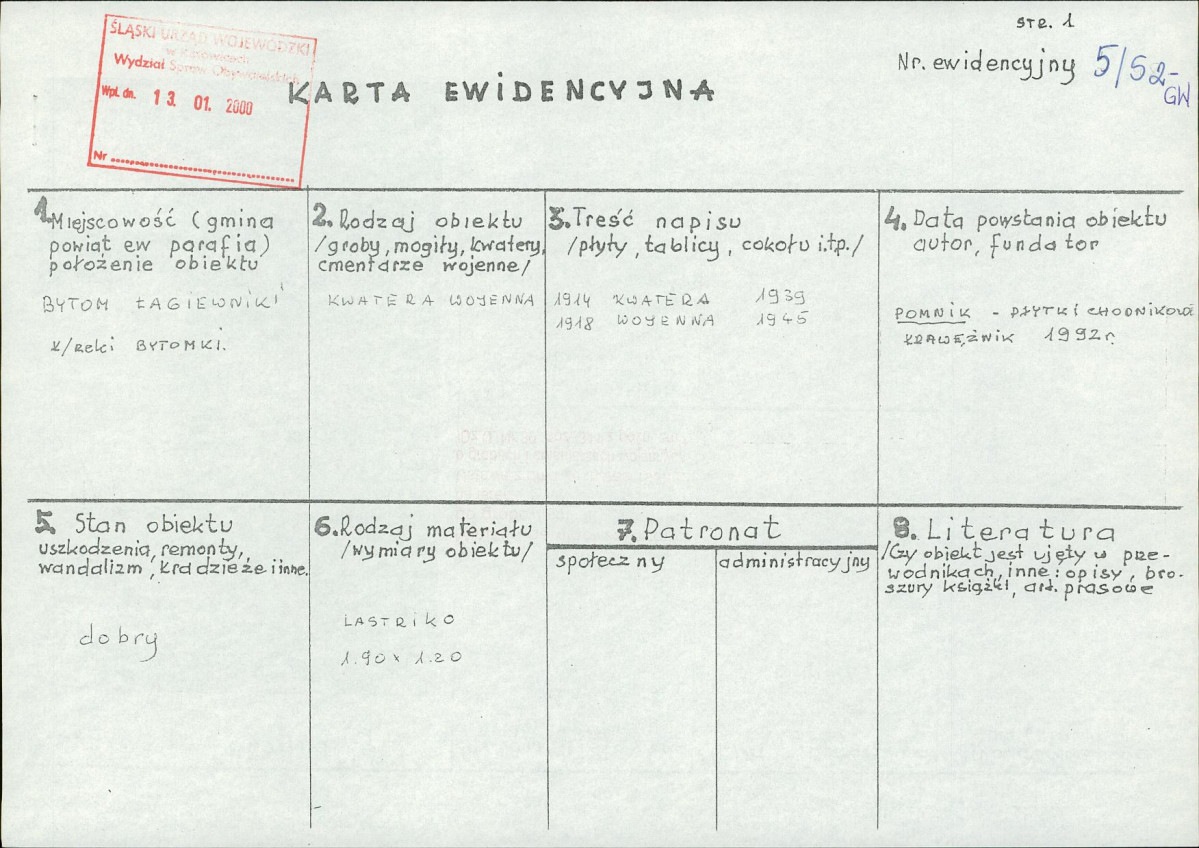 str. 1
ŚLĄSKI URZĄD WOJEWÓDZKI
w Katowicach
Wydział Spraw Obywatelskich
Wpł. dn. 13. 01. 2000
Nr
Nr. ewidencyjny 5/52-
GW
KARTA EWIDENCYJNA
1. Miejscowość (gmina
powiat ew parafia)
położenie obiektu
BYTOM ŁAGIEWNIKI
k/rzeki BYTOMKI.
2. Rodzaj obiektu
/groby, mogiły, kwatery,
cmentarze wojenne/
KWATERA WOJENNA
3. Treść napisu
/płyty, tablicy, cokołu i.t.p./
1914 KWATERA 1939
1918 WOJENNA 1945
4. Data powstania obiektu
autor, fundator
POMNIK - PŁYTKI CHODNIKOWA
KRAWĘŻNIK 1992r.
5. Stan obiektu
uszkodzenia, remonty,
wandalizm, kradzieże i inne.
dobry
6. Rodzaj materiału
/wymiary obiektu/
LASTRIKO
1.90 x 1.20
7. Patronat
społeczny
administracyjny
8. Literatura
/Cy obiekt jest ujęty w prze-
wodnikach, inne: opisy, bro-
szury książki, art. prasowe